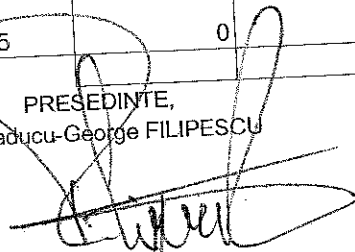 5 0
PRESEDINTE,
aducu-George FILIPESCU